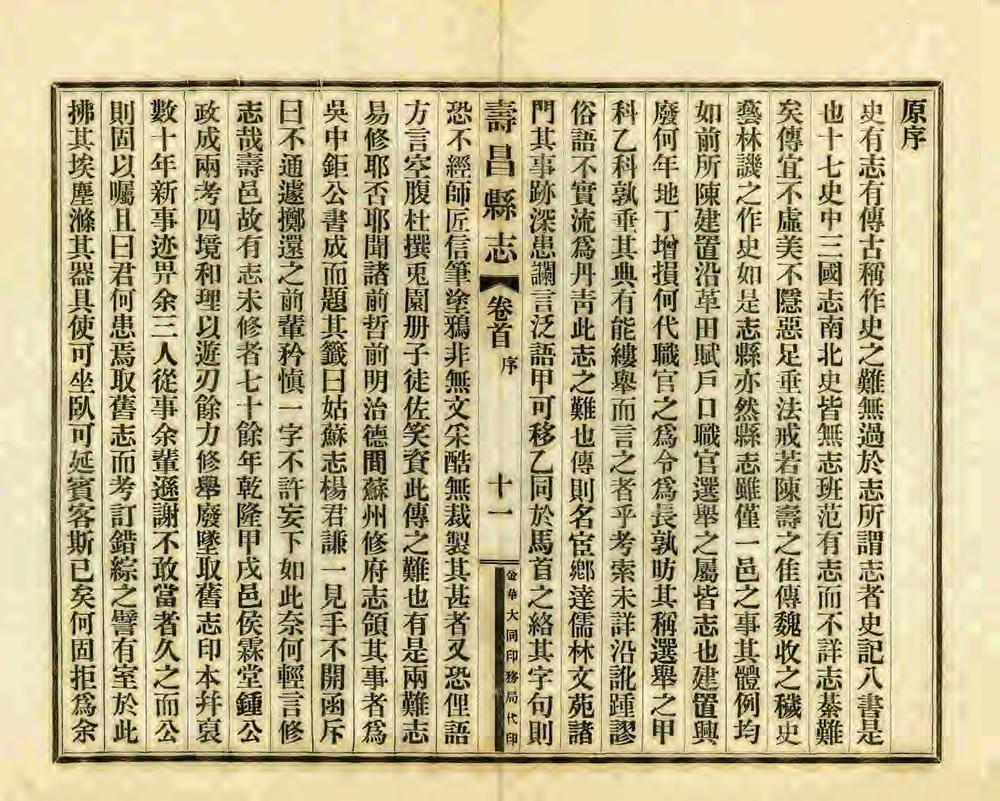 原序
史有志有傳古稱作史之難無過於志所謂志者史記八書是
也十七史中三國志南北史皆無志班范有志而不詳志綦難
矣傳宜不虛美不隱惡足垂法戒若陳壽之隹傳魏收之穢史
藝林譏之作史如是志縣亦然縣志雖僅一邑之事其體例均
如前所陳建置沿革田賦戶口職官選舉之屬皆志也建置興
廢何年地丁增損何代職官之爲令爲長孰昉其稱選舉之甲
科乙科孰垂其典有能縷舉而言之者乎考索未詳沿訛踵謬
俗語不實流爲丹靑此志之難也傳則名宦鄕達儒林文苑諸
門其事跡深患讕言泛語甲可移乙同於馬首之絡其字句則
壽昌縣志 卷首 序 十一 金華大同印務局代印
恐不經師匠信筆塗鴉非無文采酷無裁製其甚者又恐俚語
方言空腹杜撰兎園册子徒佐笑資此傳之難也有是兩難志
易修耶否耶聞諸前哲前明治德間蘇州修府志領其事者爲
吳中鉅公書成而題其籤曰姑蘇志楊君謙一見手不開函斥
曰不通遽擲還之前輩矜愼一字不許妄下如此奈何輕言修
志哉壽邑故有志未修者七十餘年乾隆甲戌邑侯霖堂鍾公
政成兩考四境和理以遊刃餘力修舉廢墜取舊志印本幷裒
數十年新事迹畀余三人從事余輩遜謝不敢當者久之而公
則固以囑且曰君何患焉取舊志而考訂錯綜之譬有室於此
拂其埃塵滌其器具使可坐臥可延賓客斯已矣何固拒爲余